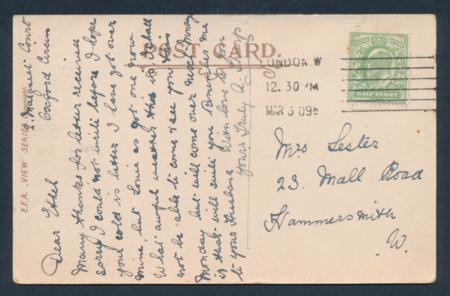 POST CARD.
E.F.A. "VIEW" SERIES
LONDON. W
12.30 PM
MAR 6 09
HALF PENNY
Mrs Lester
23. Mall Road
Hammersmith
W.
Oxford Circus
Dear Ethel
Many thanks for letter received
sorry I could not write before I hope
your cold is better I have got over
mine but Louie as got one now
What awful weather this is I shall
not be able to come & see you this
Monday but will come over next Monday
if that will suit you
With love to
to your Husband
Yours Truly A.